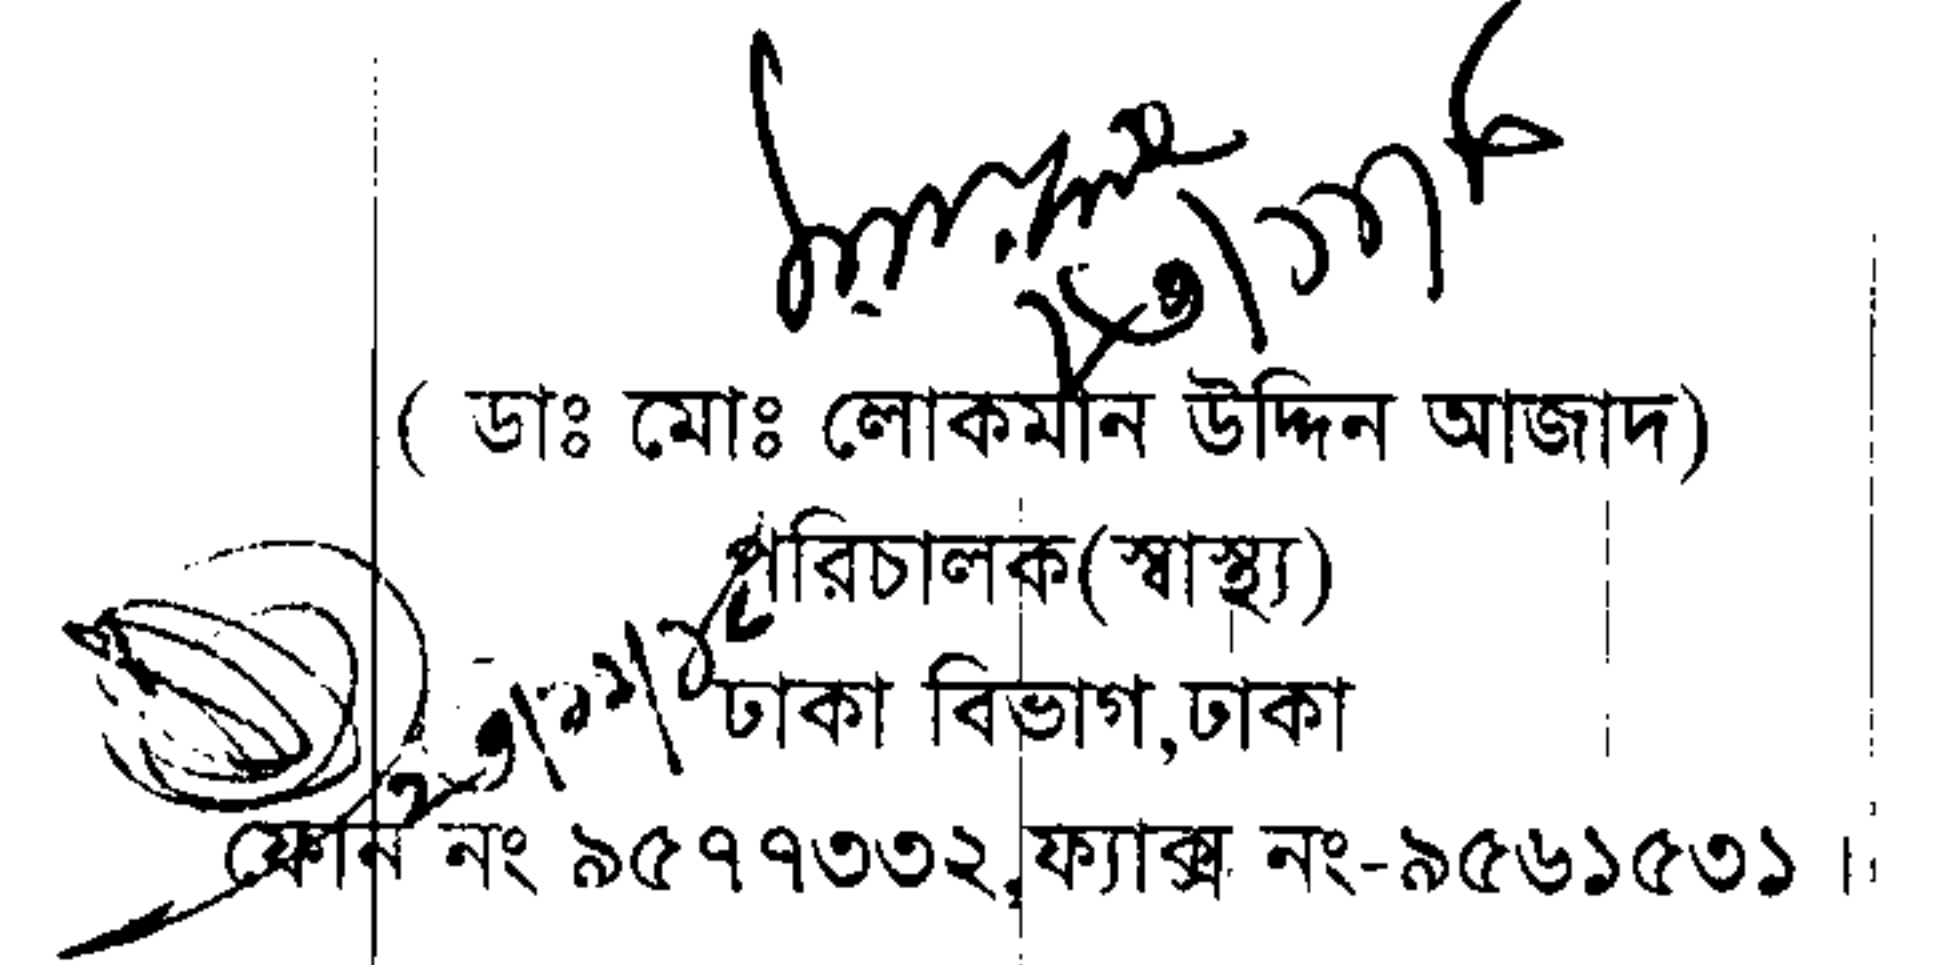 ( ডাঃ মোঃ লোকমান উদ্দিন আজাদ)
পরিচালক(স্বাস্থ্য)
ঢাকা বিভাগ,ঢাকা
ফোন নং ৯৫৭৭৩৩২, ফ্যাক্স নং-৯৫৬১৫৩১ ।